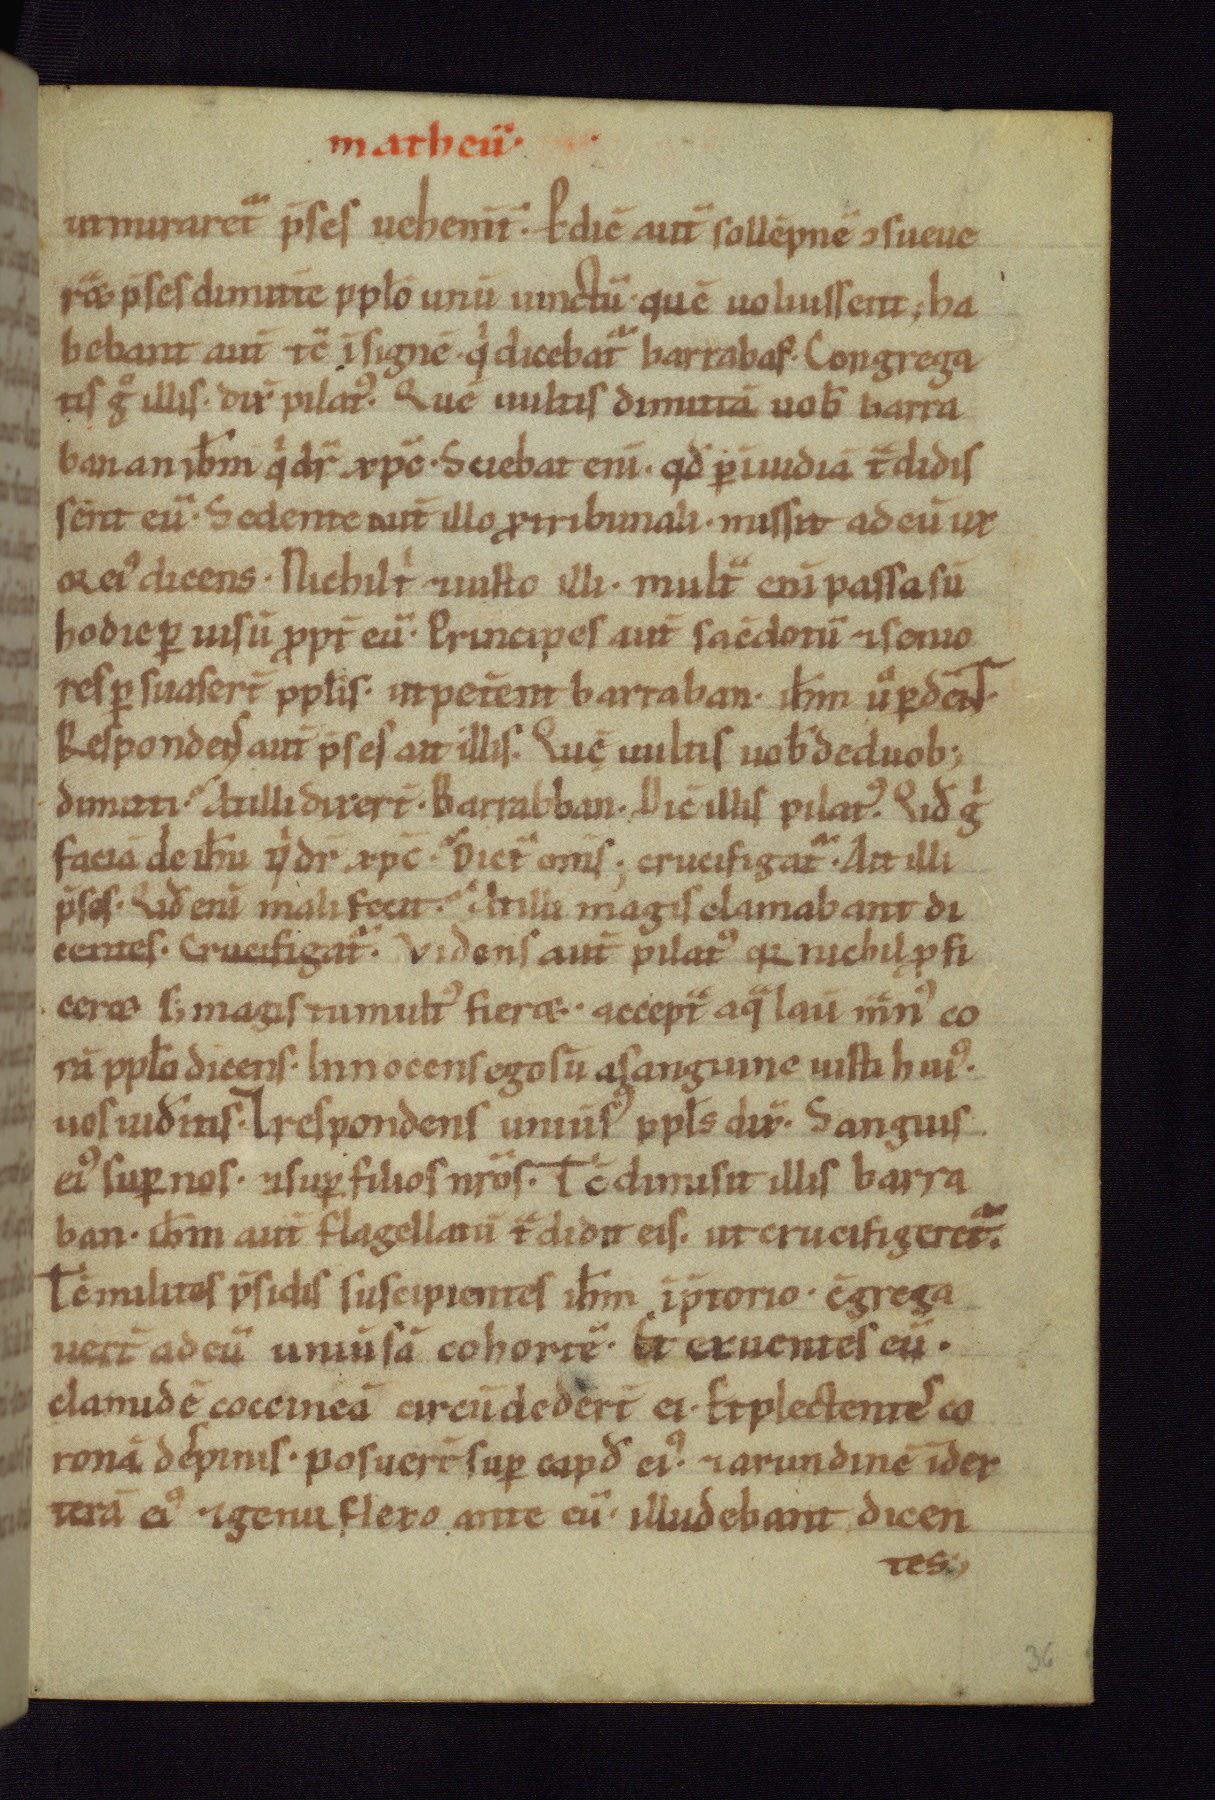 matheū.
ut miraret̃ p̄ses uehem̄t̄. P diē aut̄ sollēpnē ↄsueue
rã p̄ses dimitte pplō unū uinctū. quē uoluissent; ha
bebant aut̄ tc̄ īsignē. q̇ dicebat̃ barrabas. Congrega
tis g° illis. dix̄ pilat⁹. Quē uultis dimittā uob̄ barra
ban an ih̄m q̇ dr̄ xp̄c. Sciebat enī. qd̄ ꝑ īuidiā t̃didis
sent eū. Sedente aut̄ illo ꝓ tribunali. missit ad eū ux
or ei⁹ dicens. Nichil t' ⁊ iusto illi. mult̃ enī passa sū
hodie ꝑ uisū ꝓpt̄ eū. Principes aut̄ sac̄dotū ⁊ senio
res ꝑsuasert̄ pplīs. ut peterent barraban. ih̄m ů ꝑdert̄.
Respondens aut̄ p̄ses ait illis. Quē uultis uob̄ de duob;
dimitti. At illi dixert̄. Barrabban. Dic̄ illis pilat⁹. Quid g̊
faciā de ih̄u q̇ dr̄ xp̄c. Dict̃ om̄s; crucifigat̃. Ait illi
p̄ses. Quid enī mali fecit. At illi magis clamabant di
centes. Crucifigat̃. Videns aut̄ pilat⁹ qꝛ nichil ꝓfi
ceret sȝ magis tumult⁹ fieret. accept̃ aq̃ lau m̃n⁹ co
rā pplō dicens. Innocens ego sū a sanguine iusti hui⁹.
uos uid̄itis. ⁊ respondens uniūs⁹ ppl̄s dix̄. Sanguis
ei⁹ suꝑ nos. ⁊ suꝑ filios nr̄os. Tc̄ dimisit illis barra
ban. ih̄m aut̄ flagellatū t̃didit eis. ut crucifigeret̃.
Tc̄ milites p̄sidis suscipientes ih̄m ī p̄torio. c̄grega
uert̄ ad eū uniūsā cohortē. Et exuentes eū.
clamidē coccineā circūdedert̄ ei. Et plectentes co
ronā de spinis. posuert̄ suꝑ capđ ei⁹. ⁊ arundinē ī dex
terā ei⁹ ⁊ genu flexo ante eū. illudebant dicen
tes;
36